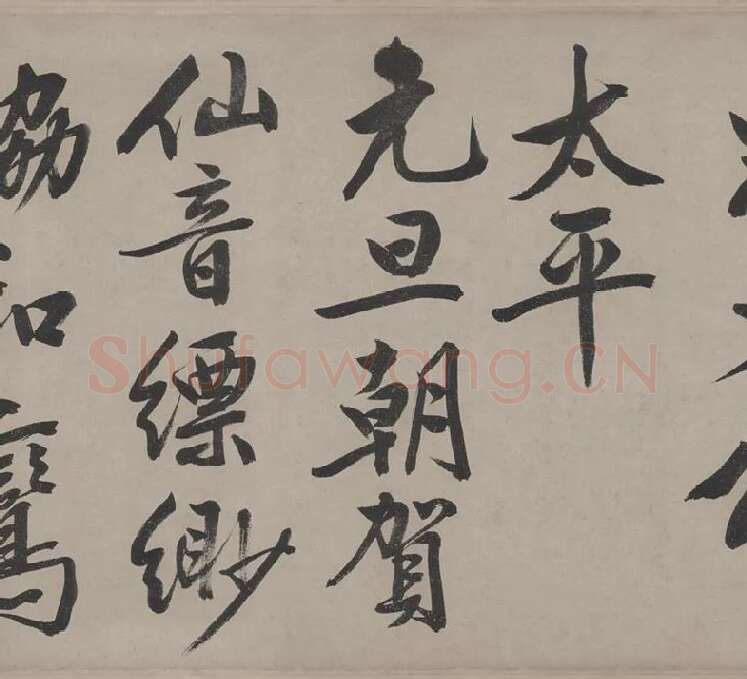 太平
元旦朝賀
仙音縹緲
協和鸞
Shufawang.CN